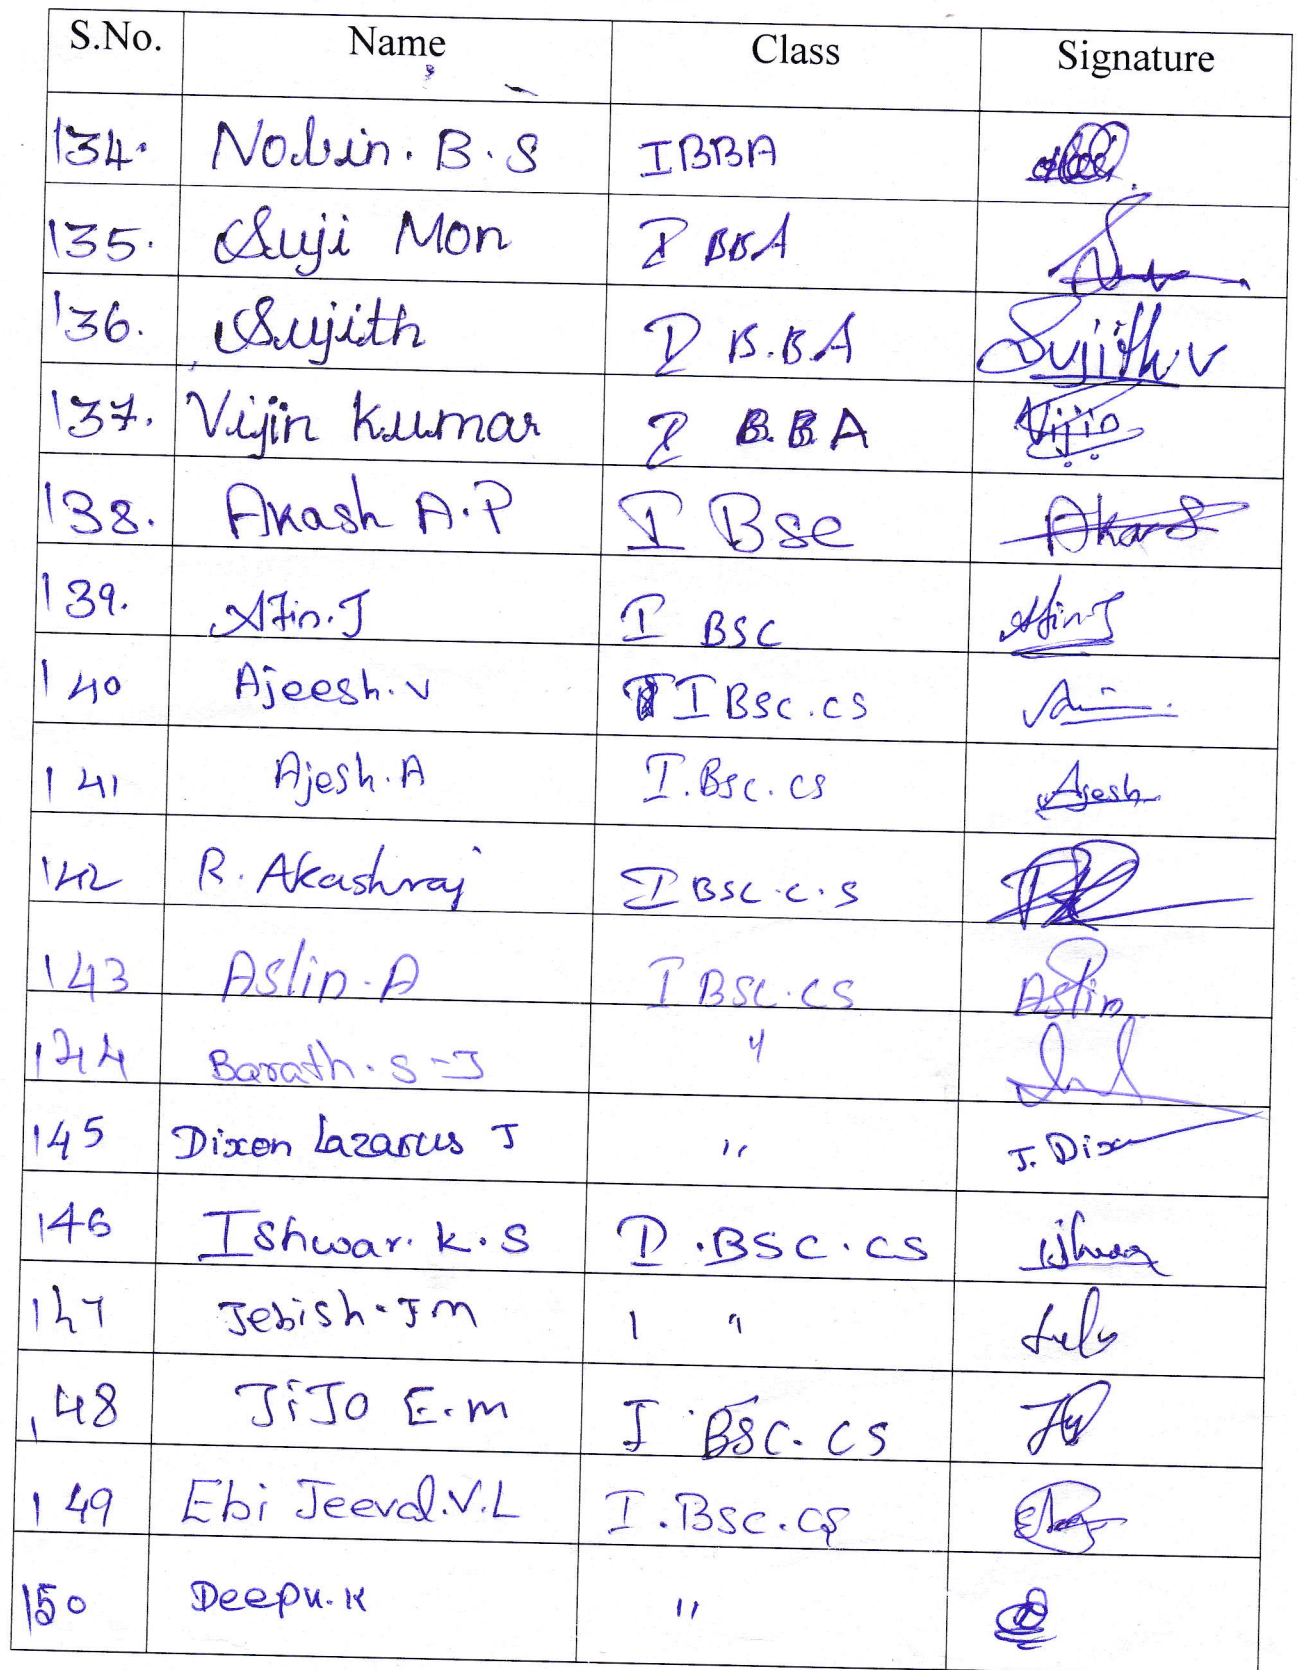 S.No. Name Class Signature
134. Nobin. B. S I BBA
135. Suji Mon I BBA
136. Sujith I B.BA Sujith V
137. Vijin Kumar I B.BA Vijin
138. Akash A.P I Bsc Akash
139. Afin. J I BSC Afin. J
140 Ajeesh. V I BSC.CS
141 Ajesh. A I. BSC. CS Ajesh
142 R. Akashraj I BSC. C. S
143 Aslin. A I BSC. CS Aslin
144 Barath. S-J "
145 Dixon Lazarus J " J. Dixon
146 Ishwar. K. S I. BSC. CS Ishwar
147 Jebish. J M I "
148 JiJO E. m I BSC. CS
149 Ebi Jeeval. V. L I. BSC. CS
150 Deepu. K "